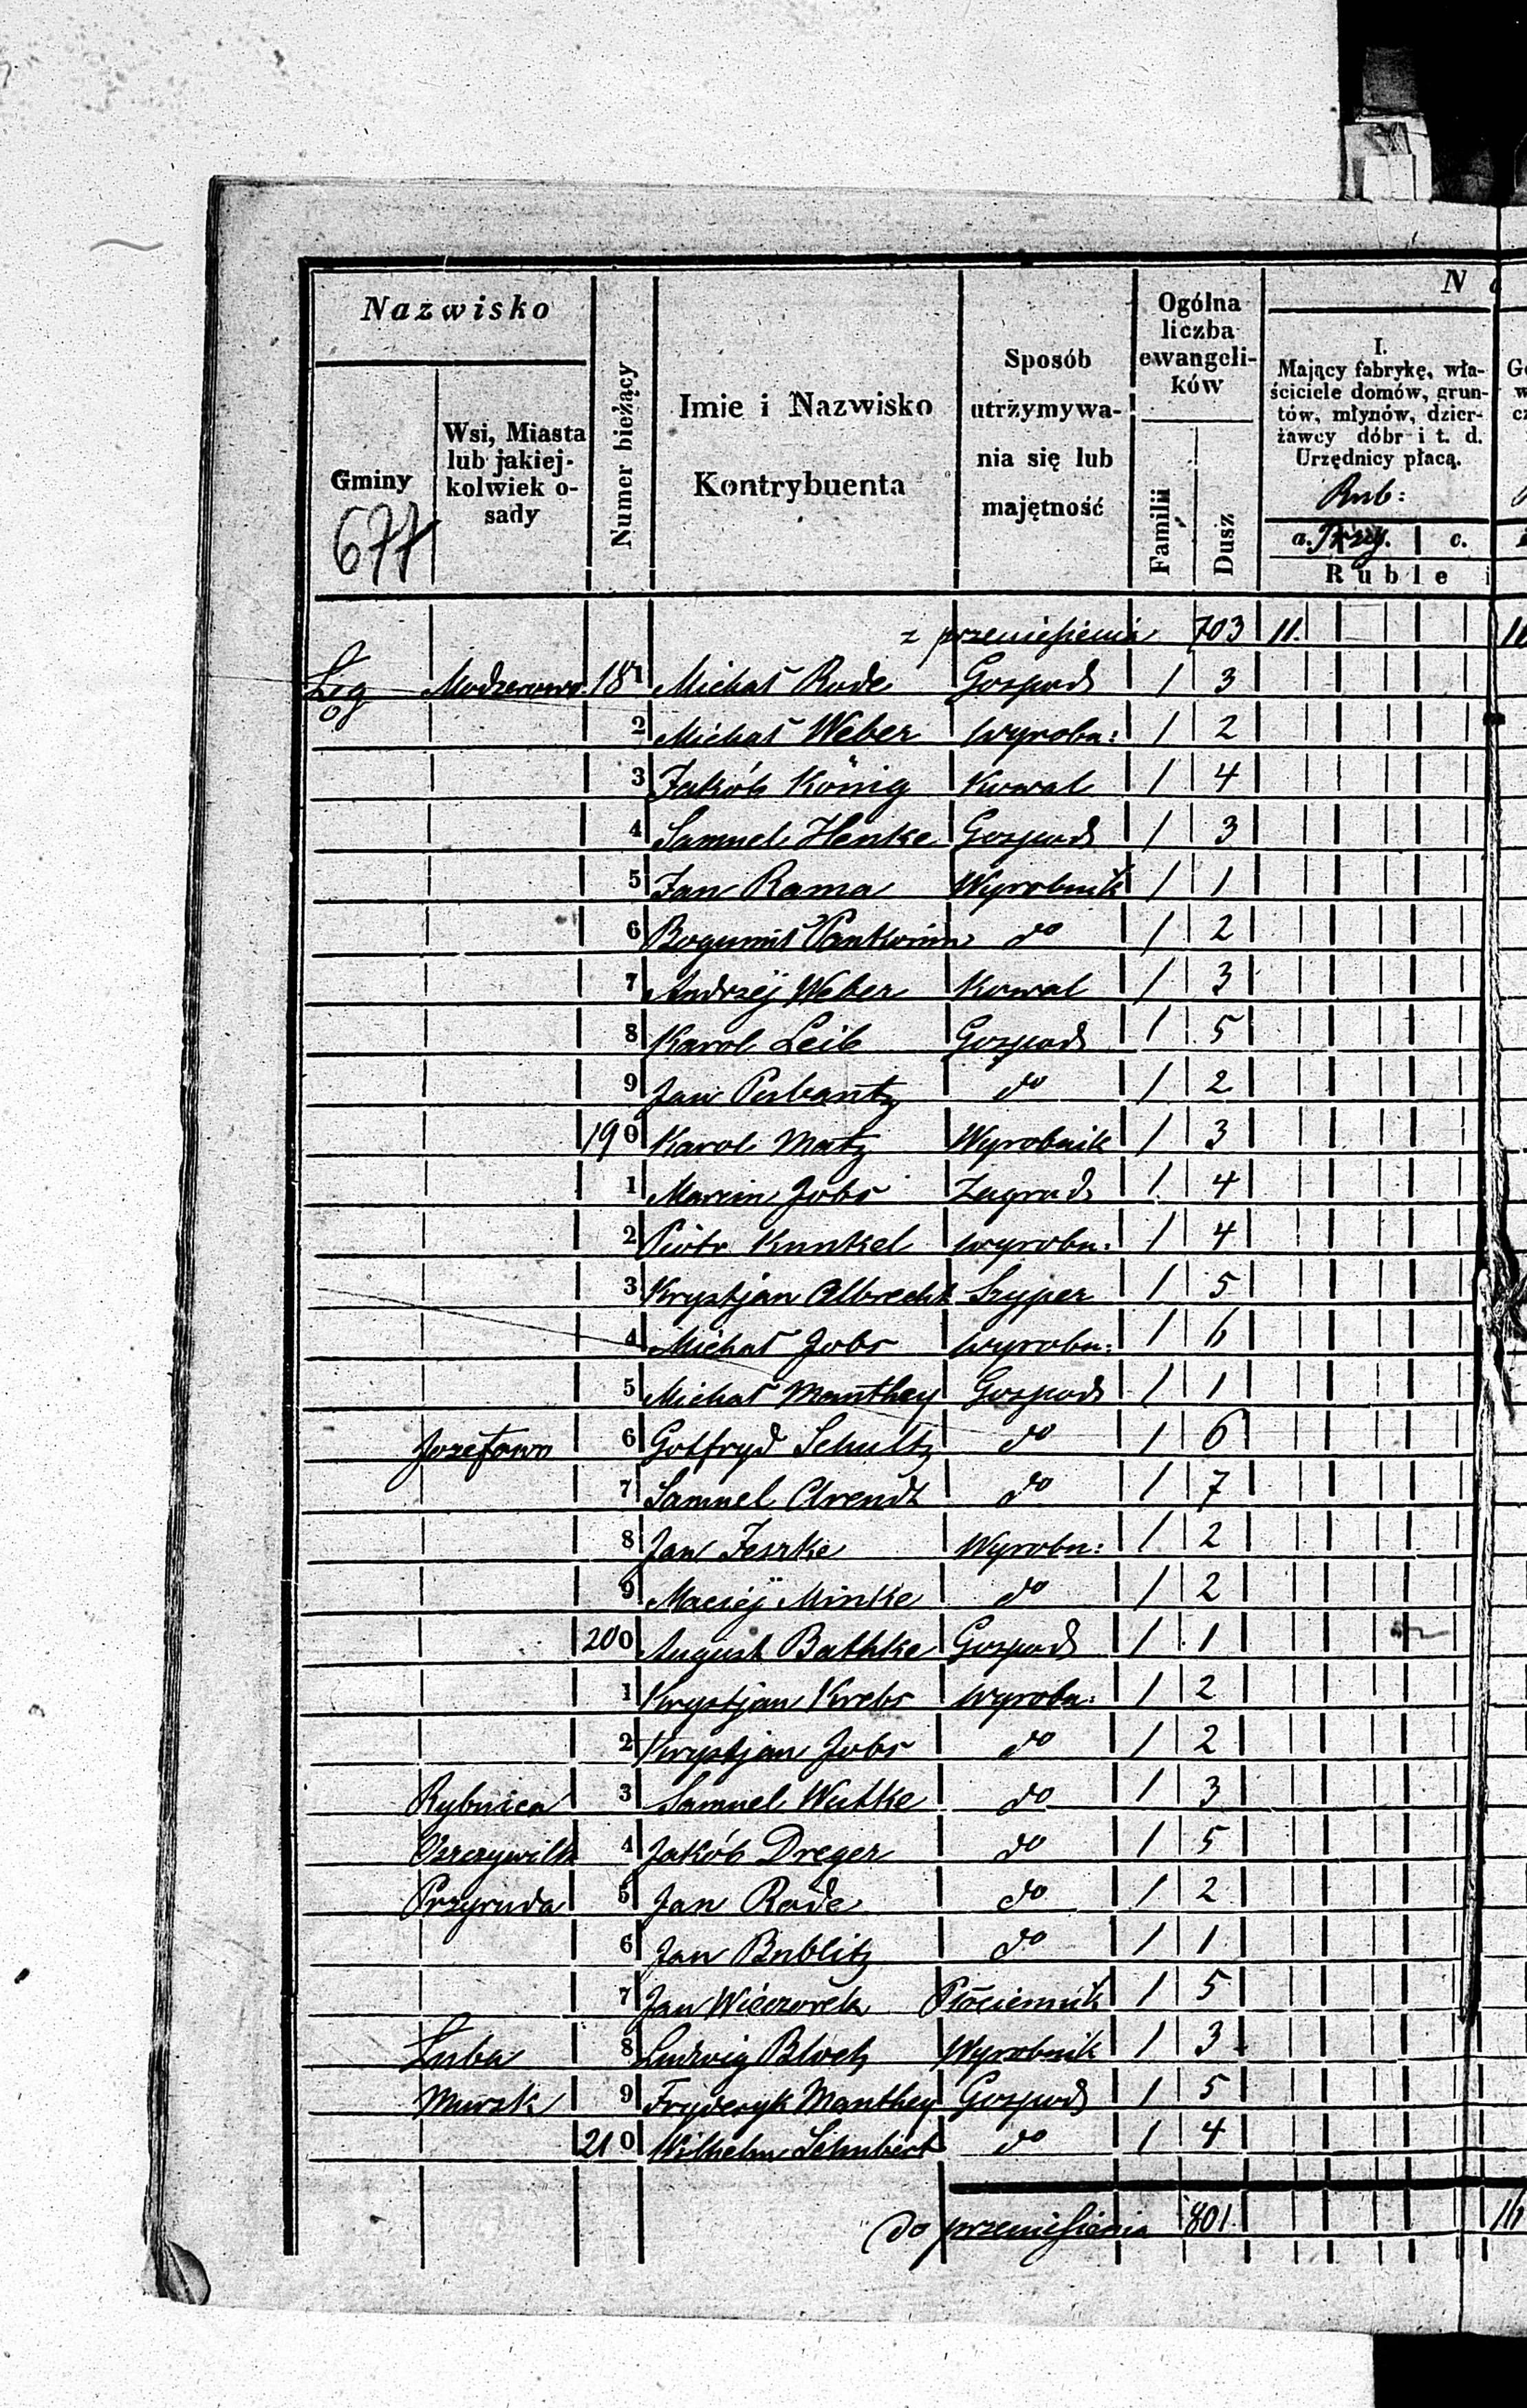 Nazwisko
Gminy
Wsi, Miasta
lub jakiej-
kolwiek o-
sady
Numer bieżący
Imie i Nazwisko
Kontrybuenta
Sposób
utrzymywa-
nia się lub
majętność
Ogólna
liczba
ewangeli-
ków
Familii
Dusz
N
I.
Mający fabrykę, wła-
ściciele domów, grun-
tów, młynów, dzier-
żawcy dóbr i t. d.
Urzędnicy płacą.
Rub:
a. c.
Ruble
677
z przeniesienia 703 11
Łęg Modzerowo 181 Michał Rode Gospod 1 3
2 Michał Weber wyrobn: 1 2
3 Jakób König Kowal 1 4
4 Samuel Henke Gospod 1 3
5 Jan Rama Wyrobnik 1 1
6 Bogumił do 1 2
7 Andrzéj Weber Kowal 1 3
8 Karol Leib Gospod 1 5
9 Jan Pubantz do 1 2
190 Karol Matz Wyrobnik 1 3
1 Marcin Jobs Zagrod 1 4
2 Piotr Kunkel wyrobn: 1 4
3 Krystjan Albrecht Szyper 1 5
4 Michał Jobs wyrobn: 1 6
5 Michał Manthey Gospod 1 1
Jozefowo 6 Gotfryd Schultz do 1 6
7 Samuel Arendt do 1 7
8 Jan Jeszke Wyrobn: 1 2
9 Maciéj Mintke do 1 2
200 August Bathke Gospod 1 1
1 Krystjan Krebs wyrobn: 1 2
2 Krystjan Jobs do 1 2
Rybnica 3 Samuel Wutke do 1 3
4 Jakób Dreger do 1 5
Przyruda 5 Jan Rode do 1 2
6 Jan Bublitz do 1 1
7 Jan Wieczorek Płóciennik 1 5
Luba 8 Ludwig Block Wyrobnik 1 3
Mursk 9 Fryderyk Manthey Gospod 1 5
210 Wilhelm Schubert do 1 4
do przeniesienia 801